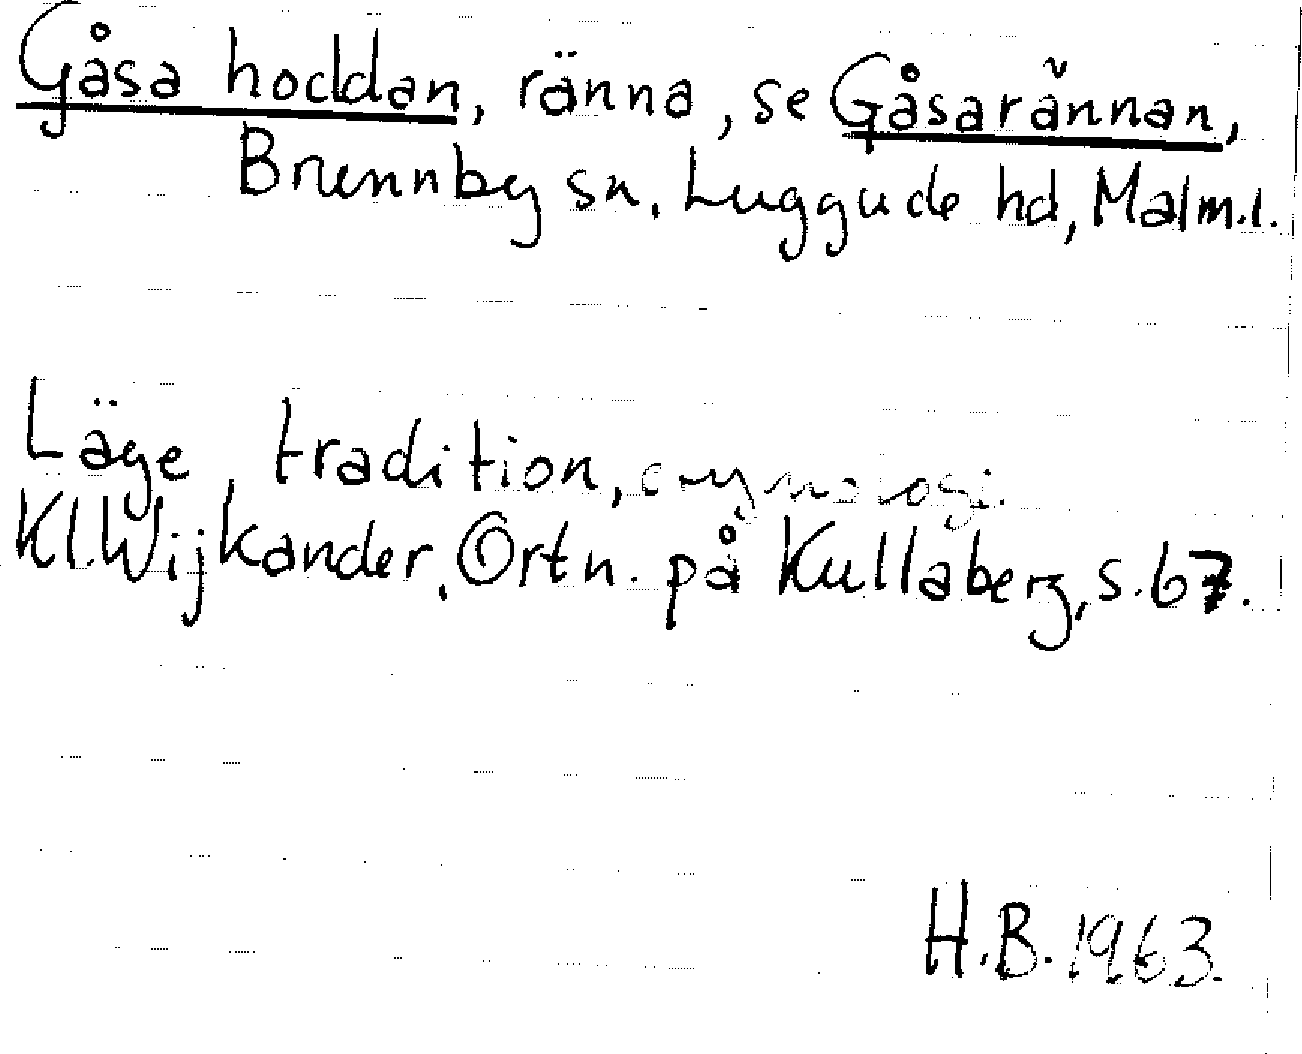 Gåsa hoddan, ränna, se Gåsarännan,
Brunnby sn, Luggude hd, Malm.l.
Läge, tradition, etymologi.
Kl.Wijkander, Ortn. på Kullaberg, s.67.
H.B. 1963.